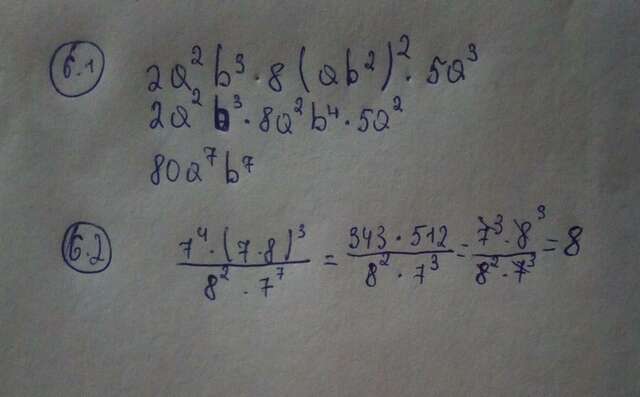 6.1
2a²b³·8(ab²)²·5a³
2a²b³·8a²b⁴·5a²
80a⁷b⁷
6.2
7⁴·(7·8)³/8²·7⁷ = 343·512/8²·7³ = 7³·8³/8²·7³ = 8